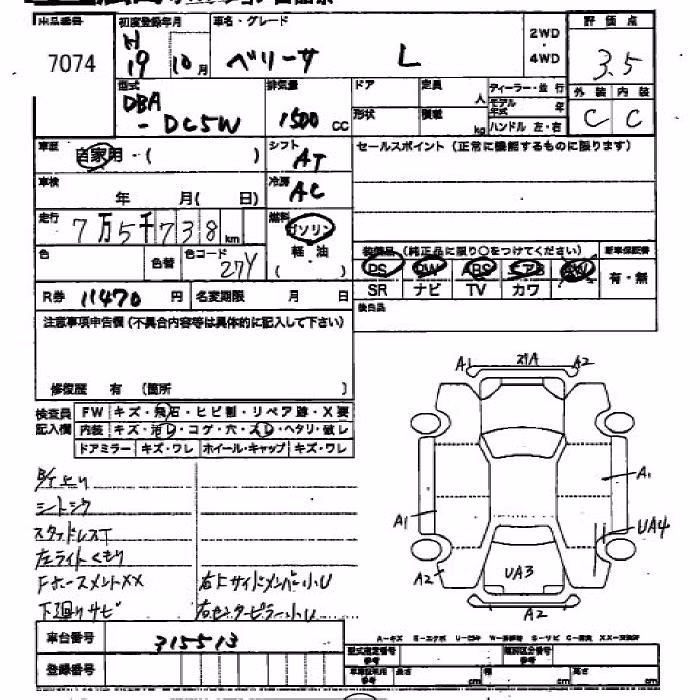 出品番号 初度登録年月 車名・グレード 評価点
7074 H19 10月 ベリーサ L 2WD・4WD 3.5
型式 排気量 ドア 定員 人 ディーラー・並行 外装 内装
DBA-DC5W 1500 CC 形状 積載 kg モデル年式 年 C C
ハンドル 左・右
車歴 自家用・( ) シフト AT セールスポイント (正常に機能するものに限ります)
車検 年 月( 日) 冷房 AC
走行 7万5千738km 燃料 ガソリン
軽・油
( )
色 色替 色コード 27Y
装備品 (純正品に限り○をつけてください) 新車保証書
PS PW ABS エアB AW 有・無
SR ナビ TV カワ
R券 11470円 名変期限 月 日 検白品
注意事項申告欄(不具合内容等は具体的に記入して下さい)
修復歴 有 (箇所 )
検査員記入欄 FW キズ・飛石・ヒビ割・リペア跡・X要
内装 キズ・汚レ・コゲ・穴・スレ・ヘタリ・破レ
ドアミラー キズ・ワレ ホイール・キャップ キズ・ワレ
シートシワ
スタッドレスT
左ライトくもり
FホースメントXX 右Fサイドメンバー小U
下廻りサビ 右センターピラー小U
A1 A2
A1
A1 UA4
A2 UA3
A2
車台番号 315513
登録番号
A-キズ E-エクボ U-凹ヶ S-サビ C-腐食 XX-交換済
型式指定番号 参考 類別区分番号 参考
長さ cm 幅 cm 高さ cm